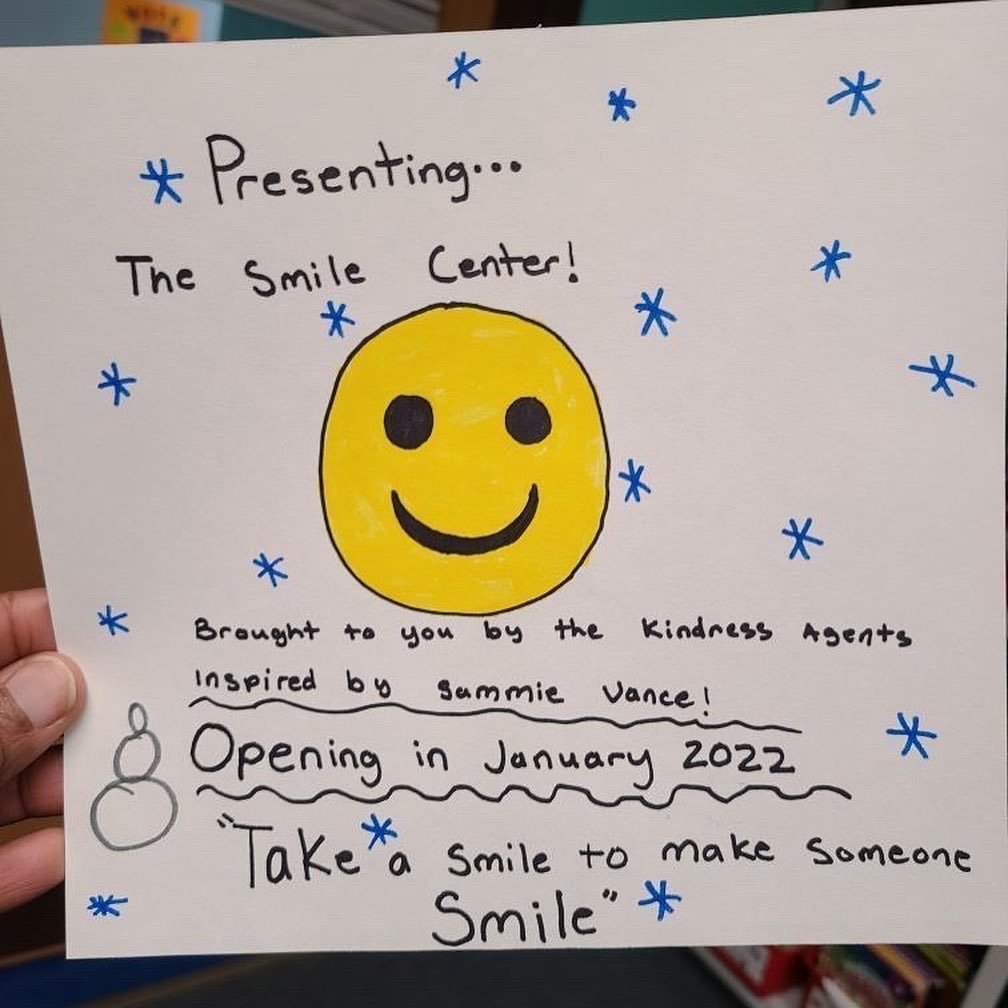 Presenting...
The Smile Center!
Brought to you by the Kindness Agents
Inspired by Sammie Vance!
Opening in January 2022
"Take a smile to make someone
Smile"